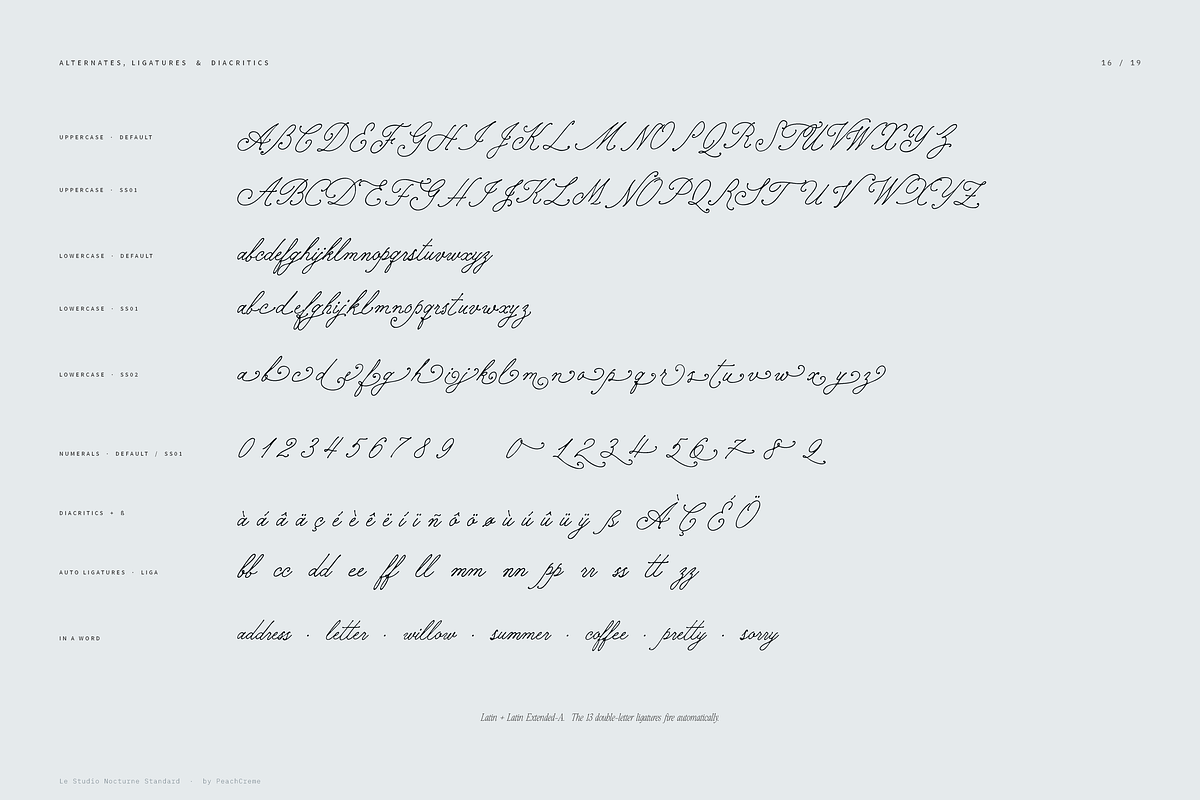 ALTERNATES, LIGATURES & DIACRITICS 16 / 19
UPPERCASE · DEFAULT ABCDEFGHIJKLMNOPQRSTUVWXYZ
UPPERCASE · SS01 ABCDEFGHIJKLMNOPQRSTUVWXYZ
LOWERCASE · DEFAULT abcdefghijklmnopqrstuvwxyz
LOWERCASE · SS01 abcdefghijklmnopqrstuvwxyz
LOWERCASE · SS02 abcdefghijklmnopqrstuvwxyz
NUMERALS · DEFAULT / SS01 0123456789 0123456789
DIACRITICS + ß à á â ä ç é è ê ë í ï ñ ô ö ø ù ú û ü ÿ ß À Ç É Ö
AUTO LIGATURES · LIGA bb cc dd ee ff ll mm nn pp rr ss tt zz
IN A WORD address · letter · willow · summer · coffee · pretty · sorry
Latin + Latin Extended-A. The 13 double-letter ligatures fire automatically.
Le Studio Nocturne Standard · by PeachCreme